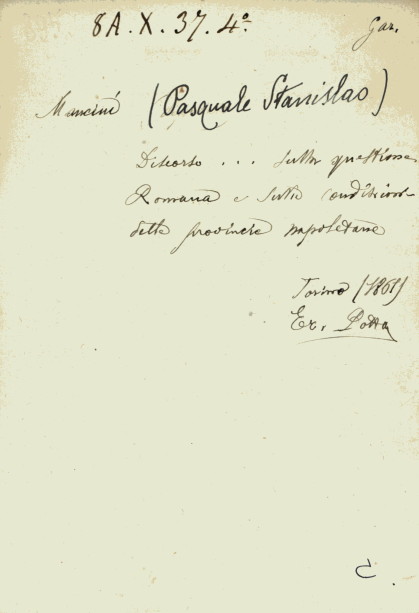 8A. X. 37. 4º. Gar.
Mancini (Pasquale Stanislao)
Discorso . . . sulla questione
Romana e sulle condizioni
delle provincie napoletane
Torino (1861)
Er. Botta